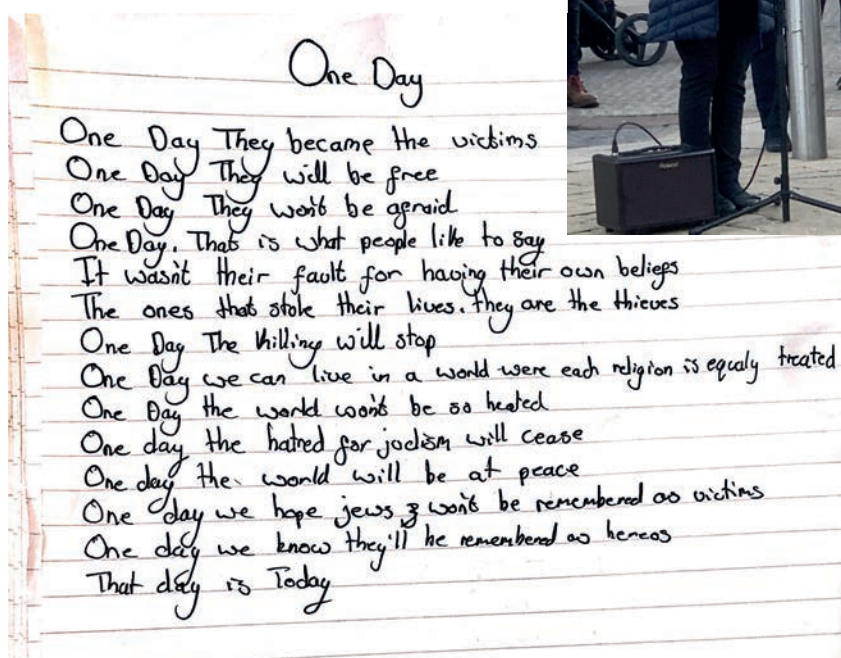 One Day
One Day They became the victims
One Day They will be free
One Day They won't be afraid
One Day. That is what people like to say
It wasn't their fault for having their own beliefs
The ones that stole their lives. They are the thieves
One Day The killing will stop
One Day we can live in a world were each religion is equaly treated
One Day the world won't be so heated
One day the hatred for judism will cease
One day the world will be at peace
One day we hope jews won't be remembered as victims
One day we know they'll be remembered as hereos
That day is Today
Roland